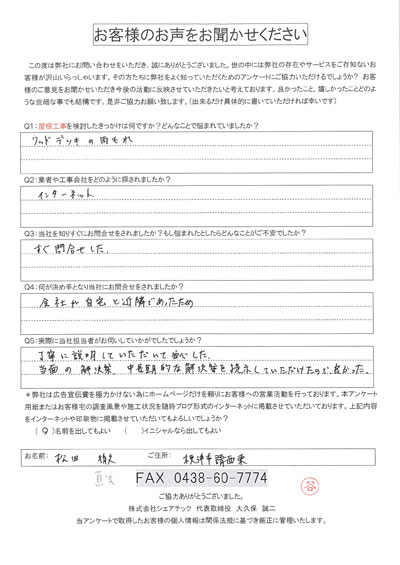 お客様のお声をお聞かせください
この度は弊社にお問い合わせをいただき、誠にありがとうございました。世の中には弊社の存在やサービスをご存知ないお
客様が沢山いらっしゃいます。その方たちに弊社をよく知っていただくためのアンケートにご協力いただけるでしょうか？ お客
様のご意見をお聞かせいただき今後の活動に反映させていただきたいと考えております。良かったこと、嬉しかったことどのよ
うな些細な事でも結構です、是非ご協力お願い致します。（出来るだけ具体的に書いていただければ幸いです）
Q1：屋根工事を検討したきっかけは何ですか？どんなことで悩まれていましたか？
ウッドデッキの雨もれ
Q2：業者や工事会社をどのように探されましたか？
インターネット
Q3：当社を知りすぐにお問合せをされましたか？もし悩まれたとしたらどんなことがご不安でしたか？
すぐ問合せした。
Q4：何が決め手となり当社にお問合せをされましたか？
会社が自宅と近隣であったため
Q5：実際に当社担当者がお伺いしていかがでしたでしょうか？
丁寧に説明していただいて安心した。
当面の解決策、中長期的な解決策を提示していただけたので良かった。
＊弊社は広告宣伝費を極力かけない為にホームページだけを頼りにお客様への営業活動を行っております。本アンケート
用紙またはお客様宅の調査風景や施工状況を随時ブログ形式のインターネットに掲載させていただいております。上記内容
をインターネットや印刷物に掲載させていただいてもよろしいでしょうか？
（ ）名前を出してもよい （ ）イニシャルなら出してもよい
お名前： 松田 ご住所： 木更津市請西東
FAX 0438-60-7774
ご協力ありがとうございました。
株式会社シェアテック 代表取締役 大久保 誠二
当アンケートで取得したお客様の個人情報は関係法規に基づき厳正に管理いたします。